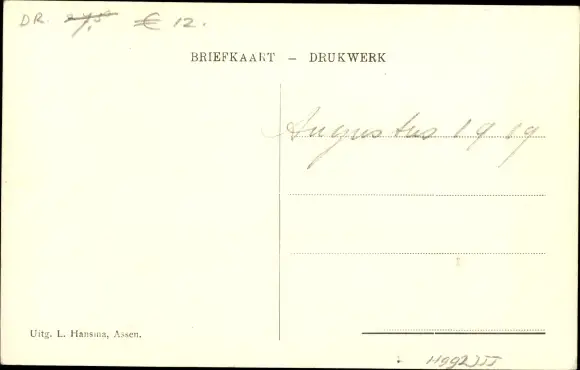 DR. € 12.
BRIEFKAART – DRUKWERK
Augustus 1919
Uitg. L. Hansma, Assen.